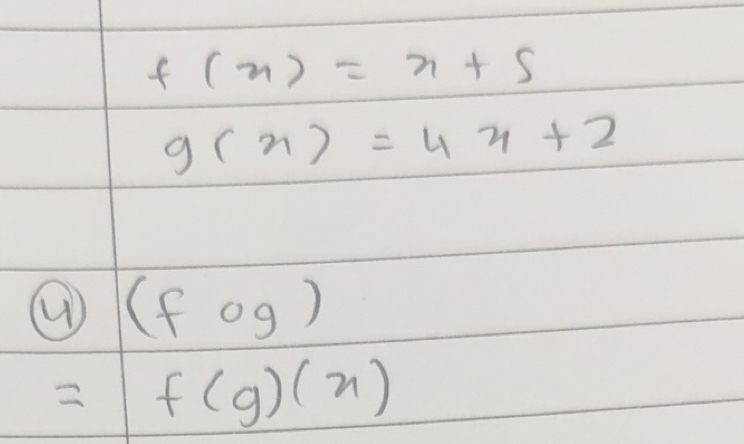 f(x) = x + 5
g(x) = 4x + 2
④ (f og)
= f(g)(x)